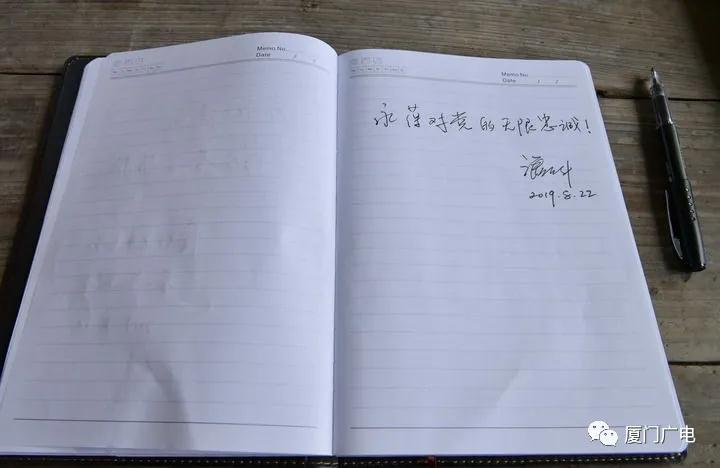 Memo No.
Date / /
Memo No.
Date / /
永葆对党的无限忠诚!
2019.8.22
厦门广电